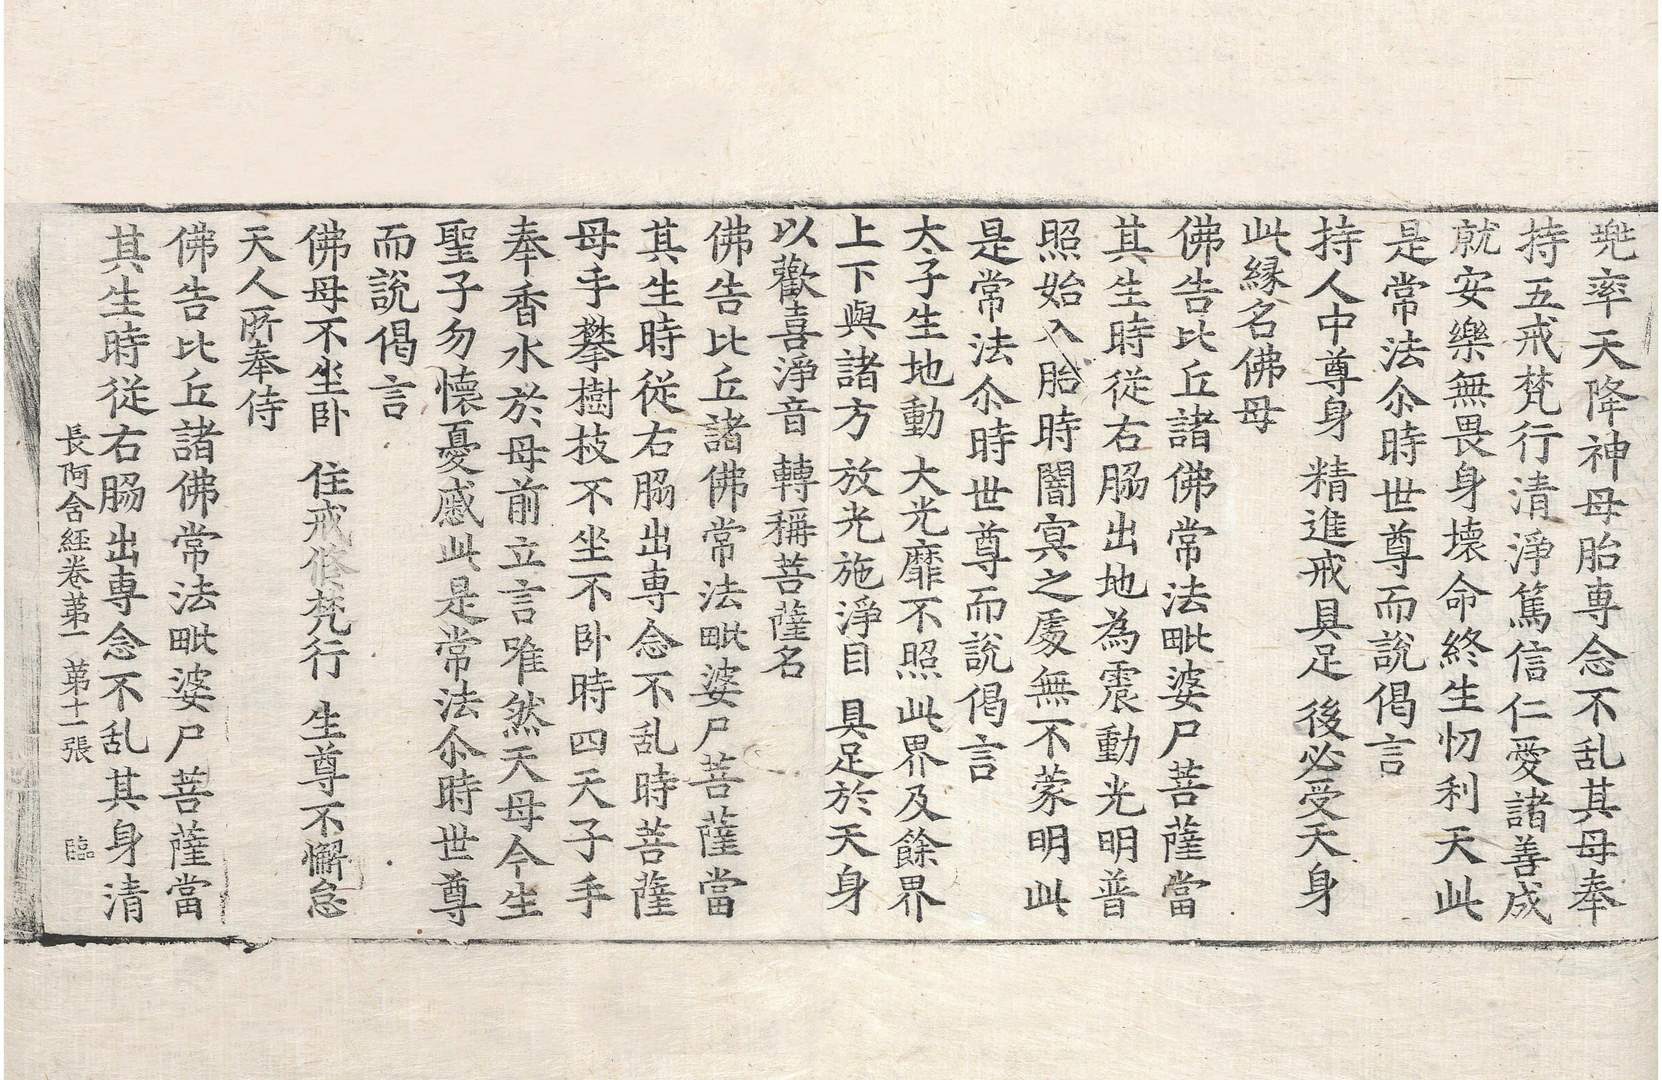 兜率天降神母胎專念不乱其母奉
持五戒梵行清淨篤信仁愛諸善成
就安樂無畏身壞命終生忉利天此
是常法尒時世尊而說偈言
持人中尊身 精進戒具足 後必受天身
此縁名佛母
佛告比丘諸佛常法毗婆尸菩薩當
其生時從右脇出地為震動光明普
照始入胎時闇㝠之處無不蒙明此
是常法尒時世尊而說偈言
太子生地動 大光靡不照 此界及餘界
上下與諸方 放光施淨目 具足於天身
以歡喜淨音 轉稱菩薩名
佛告比丘諸佛常法毗婆尸菩薩當
其生時從右脇出專念不乱時菩薩
母手攀樹枝不坐不卧時四天子手
奉香水於母前立言唯然天母今生
聖子勿懷憂慼此是常法尒時世尊
而說偈言
佛母不坐卧 住戒修梵行 生尊不懈怠
天人所奉侍
佛告比丘諸佛常法毗婆尸菩薩當
其生時從右脇出專念不乱其身清
長阿含經卷第一 第十一張 臨